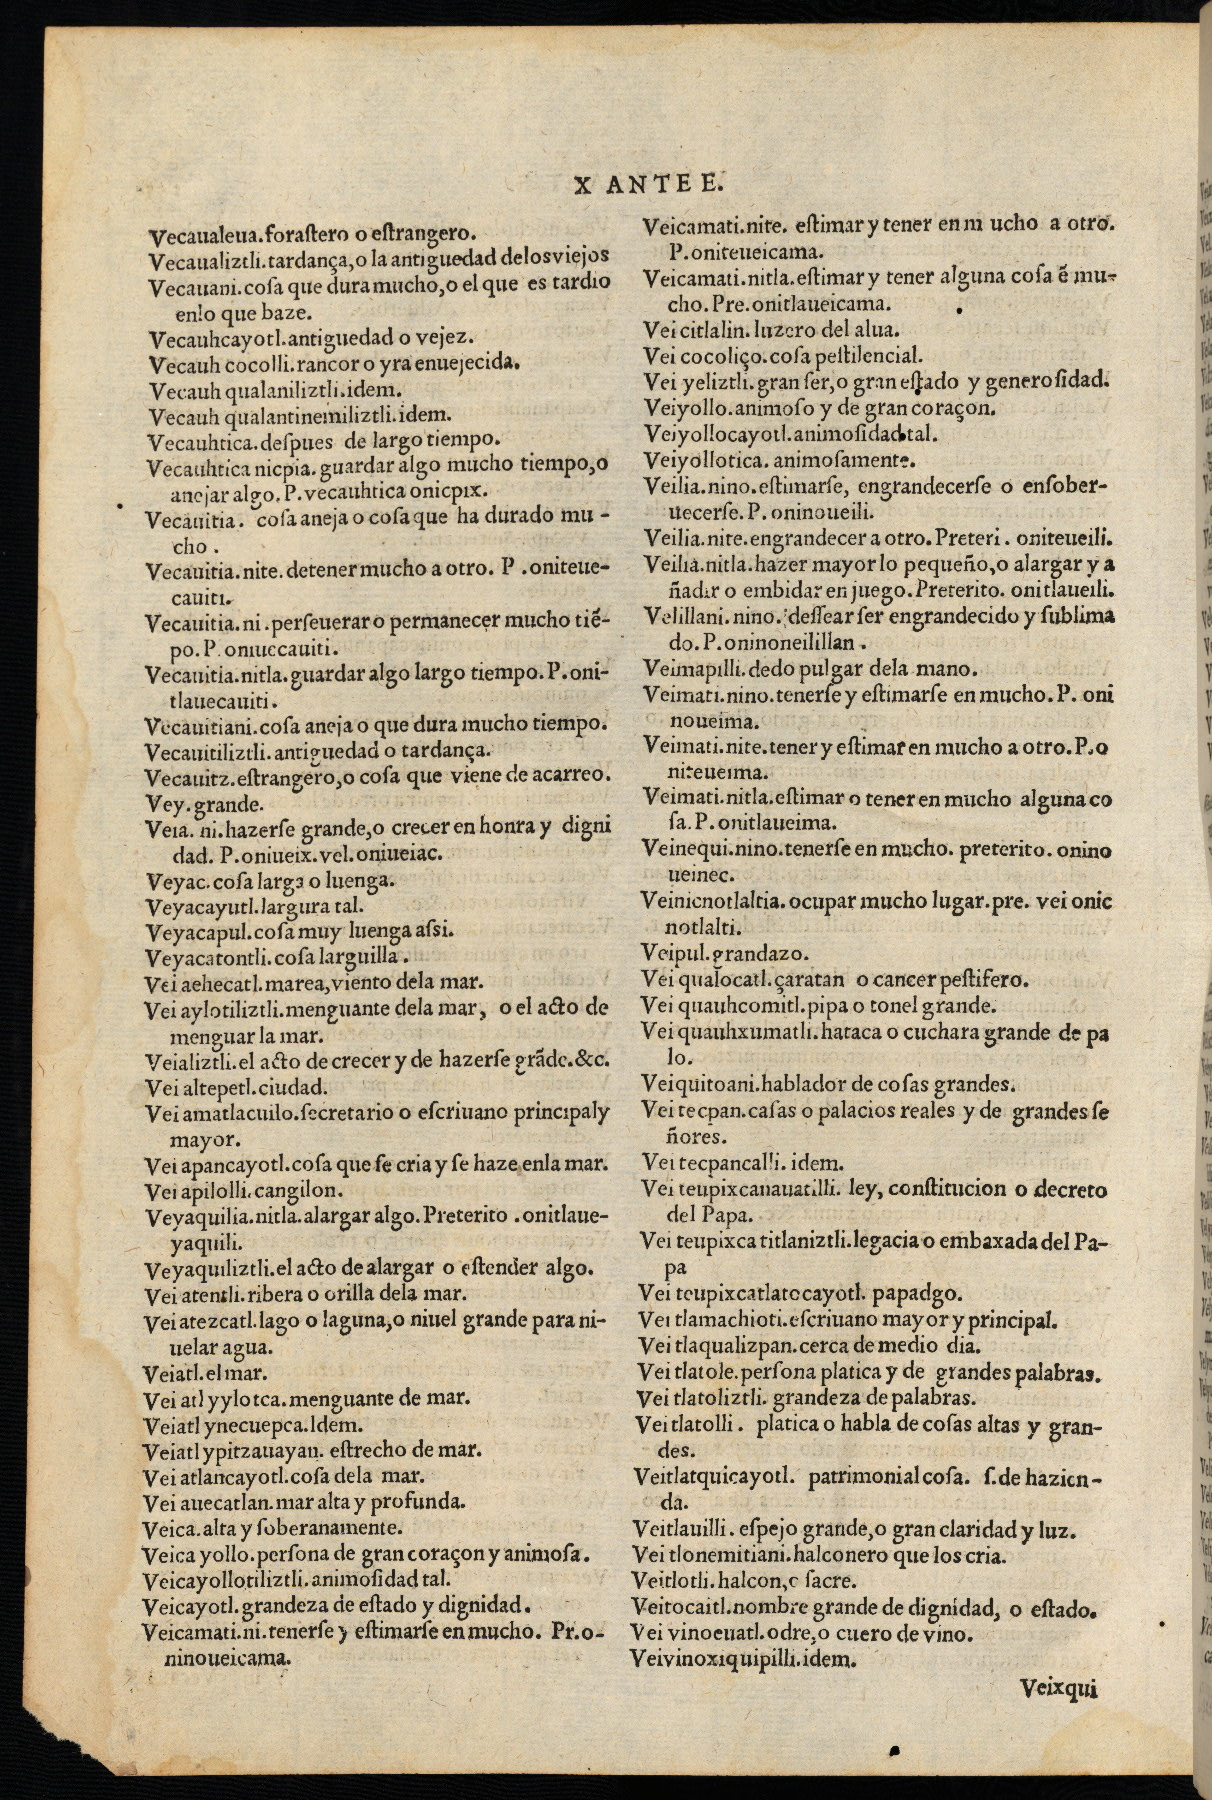 X ANTE E.
Vecaualeua.foraſtero o eſtrangero.
Vecaualiztli.tardança,o la antiguedad delosviejos
Vecauani.coſa que dura mucho,o el que es tardio
enlo que haze.
Vecauhcayotl.antiguedad o vejez.
Vecauh cocolli.rancor o yra enuejecida.
Vecauh qualaniliztli.idem.
Vecauh qualantinemiliztli.idem.
Vecauhtica.deſpues de largo tiempo.
Vecauhtica nicpia.guardar algo mucho tiempo,o
anejar algo.P.vecauhtica onicpix.
Vecauitia. coſa aneja o coſa que ha durado mu-
cho.
Vecauitia.nite.detener mucho a otro. P.oniteue-
cauiti.
Vecauitia.ni.perſeuerar o permanecer mucho tiē-
po.P.oniuecauiti.
Vecauitia.nitla.guardar algo largo tiempo.P.oni-
tlauecauiti.
Vecauitiani.coſa aneja o que dura mucho tiempo.
Vecauitiliztli.antiguedad o tardança.
Vecauitz.eſtrangero,o coſa que viene de acarreo.
Vey.grande.
Veia. ni.hazerſe grande,o crecer en honra y digni
dad. P.oniueix.vel.oniueiac.
Veyac.coſa larga o luenga.
Veyacayutl.largura tal.
Veyacapul.coſa muy luenga aſsi.
Veyacatontli.coſa larguilla.
Vei aehecatl.marea,viento dela mar.
Vei aylotiliztli.menguante dela mar, o el acto de
menguar la mar.
Veializtli.el acto de crecer y de hazerſe grāde.&c.
Vei altepetl.ciudad.
Vei amatlacuilo.ſecretario o eſcriuano principal y
mayor.
Vei apancayotl.coſa que ſe cria y ſe haze enla mar.
Vei apilolli.cangilon.
Veyaquilia.nitla.alargar algo.Preterito.onitlaue-
yaquili.
Veyaquiliztli.el acto de alargar o eſtender algo.
Vei atentli.ribera o orilla dela mar.
Vei atezcatl.lago o laguna,o niuel grande para ni-
uelar agua.
Veiatl.el mar.
Vei atl yylotca.menguante de mar.
Veiatl ynecuepca.Idem.
Veiatl ypitzauayan. eſtrecho de mar.
Vei atlancayotl.coſa dela mar.
Vei auecatlan.mar alta y profunda.
Veica.alta y ſoberanamente.
Veica yollo.perſona de gran coraçon y animoſa.
Veicayollotiliztli.animoſidad tal.
Veicayotl.grandeza de eſtado y dignidad.
Veicamati.ni.tenerſe y eſtimarſe en mucho. Pr.o-
ninoueicama.
Veicamati.nite. eſtimar y tener en m ucho a otro.
P.oniteueicama.
Veicamati.nitla.eſtimar y tener alguna coſa ē mu-
cho.Pre.onitlaueicama.
Vei citlalin.luzero del alua.
Vei cocoliço.coſa peſtilencial.
Vei yeliztli.gran ſer,o gran eſtado y generoſidad.
Veiyollo.animoſo y de gran coraçon.
Veiyollocayotl.animoſidad tal.
Veiyollotica. animoſamente.
Veilia.nino.eſtimarſe, engrandecerſe o enſober-
uecerſe.P.oninoueili.
Veilia.nite.engrandecer a otro.Preteri. oniteueili.
Veilia.nitla.hazer mayor lo pequeño,o alargar y a
ñadir o embidar en juego.Preterito. onitlaueili.
Velillani.nino.deſſear ſer engrandecido y ſublima
do.P.oninoneilillan.
Veimapilli.dedo pulgar dela mano.
Veimati.nino.tenerſe y eſtimarſe en mucho.P. oni
noueima.
Veimati.nite.tener y eſtimar en mucho a otro.P.o
niteueima.
Veimati.nitla.eſtimar o tener en mucho alguna co
ſa.P.onitlaueima.
Veinequi.nino.tenerſe en mucho. preterito. onino
ueinec.
Veinicnotlaltia.ocupar mucho lugar.pre. vei onic
notlalti.
Veipul.grandazo.
Vei qualocatl.çaratan o cancer peſtifero.
Vei quauhcomitl.pipa o tonel grande.
Vei quauhxumatli.hataca o cuchara grande de pa
lo.
Veiquitoani.hablador de coſas grandes.
Vei tecpan.caſas o palacios reales y de grandes ſe
ñores.
Vei tecpancalli.idem.
Vei teupixcanauatilli. ley, conſtitucion o decreto
del Papa.
Vei teupixca titlaniztli.legacia o embaxada del Pa-
pa
Vei teupixcatlatocayotl. papadgo.
Vei tlamachioti.eſcriuano mayor y principal.
Vei tlaqualizpan.cerca de medio dia.
Vei tlatole.perſona platica y de grandes palabras.
Vei tlatoliztli. grandeza de palabras.
Vei tlatolli. platica o habla de coſas altas y gran-
des.
Veitlatquicayotl. patrimonial coſa. ſ.de hazien-
da.
Veitlauilli.eſpejo grande,o gran claridad y luz.
Vei tlonemitiani.halconero que los cria.
Veitlotli.halcon,o ſacre.
Veitocaitl.nombre grande de dignidad, o eſtado.
Vei vinoeuatl.odre,o cuero de vino.
Veivinoxiquipilli.idem.
Veixqui